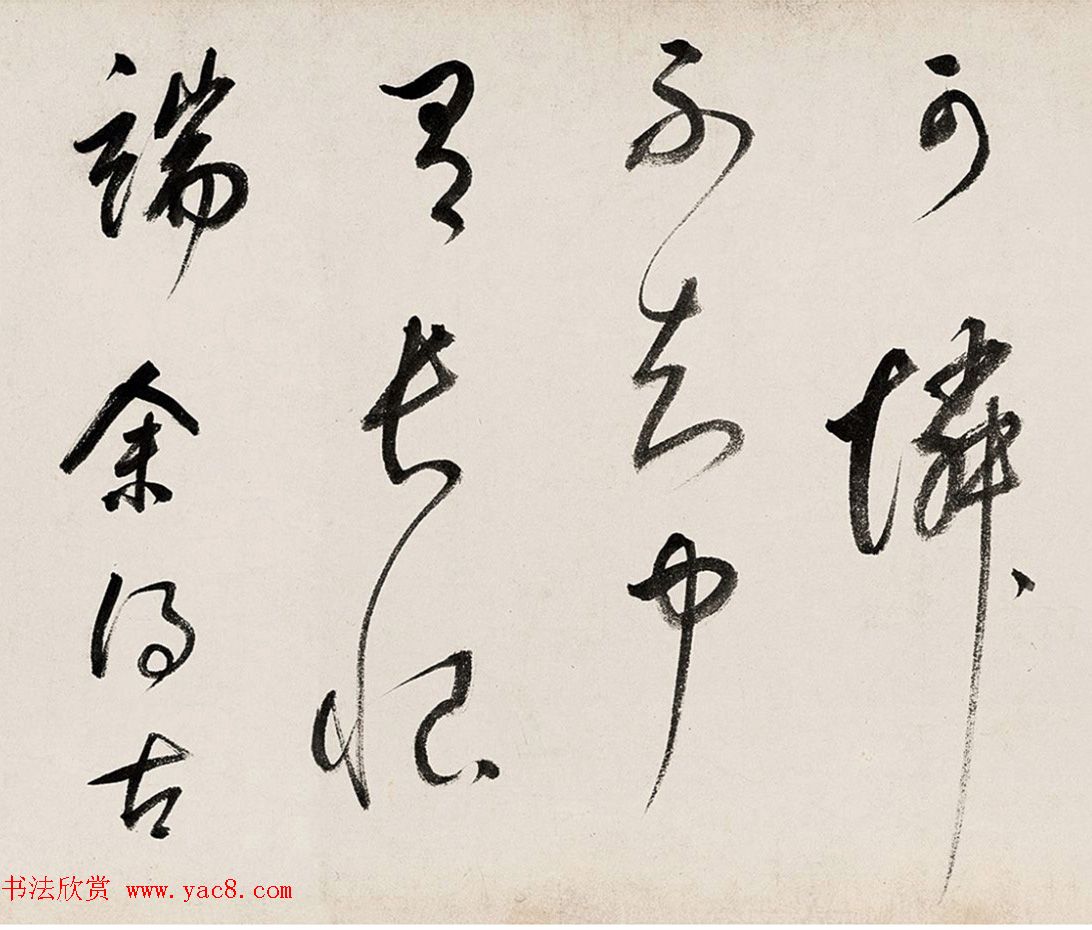 可憐
不知中
有長恨
端余得古
书法欣赏 www.yac8.com